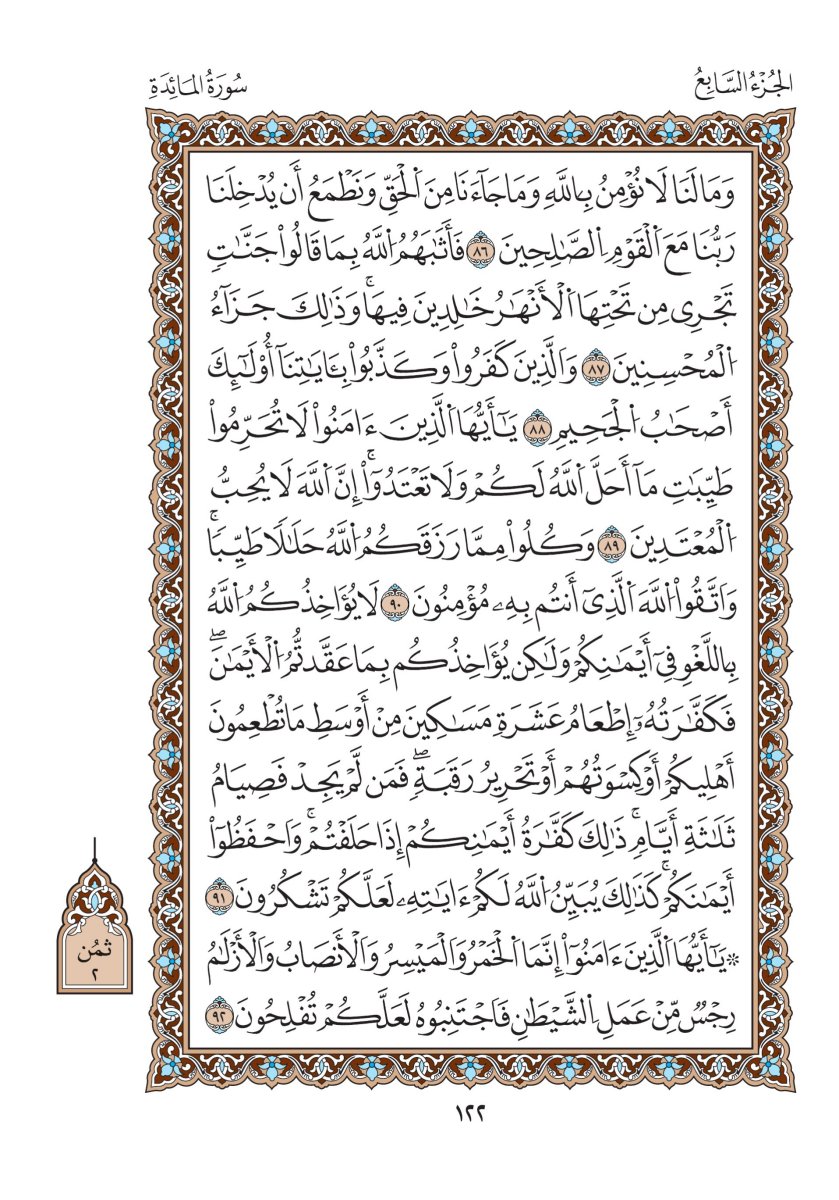 الجُزْءُ السَّابِعُ
سُورَةُ المَائِدَةِ
وَمَا لَنَا لَا نُؤْمِنُ بِاللَّهِ وَمَا جَآءَنَا مِنَ اَ۬لْحَقِّ وَنَطْمَعُ أَن يُدْخِلَنَا
رَبُّنَا مَعَ اَ۬لْقَوْمِ اِ۬لصَّٰلِحِينَ ٨٦ فَأَثَٰبَهُمُ اُ۬للَّهُ بِمَا قَالُواْ جَنَّٰتٖ
تَجْرِي مِن تَحْتِهَا اَ۬لْأَنْهَٰرُ خَٰلِدِينَ فِيهَاۚ وَذَٰلِكَ جَزَآءُ
اُ۬لْمُحْسِنِينَ ٨٧ وَالَّذِينَ كَفَرُواْ وَكَذَّبُواْ بِـَٔايَٰتِنَآ أُوْلَٰٓئِكَ
أَصْحَٰبُ اُ۬لْجَحِيمِ ٨٨ يَٰٓأَيُّهَا اَ۬لَّذِينَ ءَامَنُواْ لَا تُحَرِّمُواْ
طَيِّبَٰتِ مَآ أَحَلَّ اَ۬للَّهُ لَكُمْ وَلَا تَعْتَدُوٓاْۚ إِنَّ اَ۬للَّهَ لَا يُحِبُّ
اُ۬لْمُعْتَدِينَ ٨٩ وَكُلُواْ مِمَّا رَزَقَكُمُ اُ۬للَّهُ حَلَٰلاٗ طَيِّباٗۚ
وَاتَّقُواْ اُ۬للَّهَ اَ۬لَّذِيٓ أَنتُم بِهِۦ مُؤْمِنُونَ ٩٠ لَا يُؤَاخِذُكُمُ اُ۬للَّهُ
بِاللَّغْوِ فِيٓ أَيْمَٰنِكُمْ وَلَٰكِن يُؤَاخِذُكُم بِمَا عَقَّدتُّمُ اُ۬لْأَيْمَٰنَۖ
فَكَفَّٰرَتُهُۥٓ إِطْعَامُ عَشَرَةِ مَسَٰكِينَ مِنْ أَوْسَطِ مَا تُطْعِمُونَ
أَهْلِيكُمْ أَوْ كِسْوَتُهُمْ أَوْ تَحْرِيرُ رَقَبَةٖۖ فَمَن لَّمْ يَجِدْ فَصِيَامُ
ثَلَٰثَةِ أَيَّامٖۚ ذَٰلِكَ كَفَّٰرَةُ أَيْمَٰنِكُمْ إِذَا حَلَفْتُمْۚ وَاحْفَظُوٓاْ
أَيْمَٰنَكُمْۚ كَذَٰلِكَ يُبَيِّنُ اُ۬للَّهُ لَكُمْ ءَايَٰتِهِۦ لَعَلَّكُمْ تَشْكُرُونَ ٩١
۞ يَٰٓأَيُّهَا اَ۬لَّذِينَ ءَامَنُوٓاْ إِنَّمَا اَ۬لْخَمْرُ وَالْمَيْسِرُ وَالْأَنصَابُ وَالْأَزْلَٰمُ
رِجْسٞ مِّنْ عَمَلِ اِ۬لشَّيْطَٰنِ فَاجْتَنِبُوهُ لَعَلَّكُمْ تُفْلِحُونَ ٩٢
ثمُن
٢
١٢٢